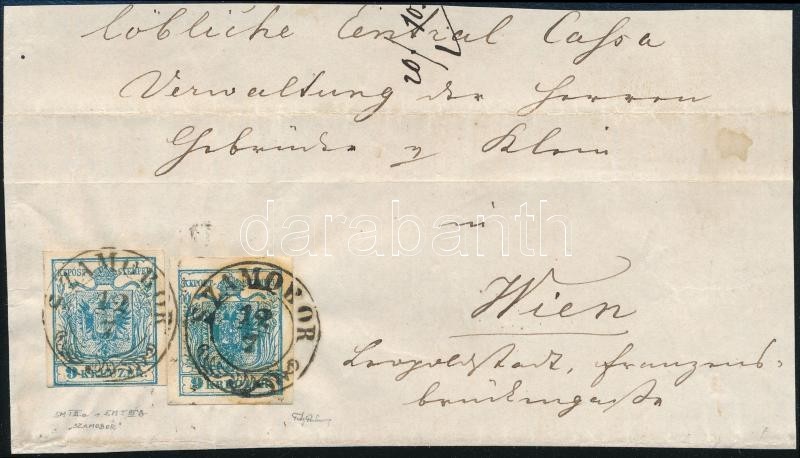 löbliche Central Cassa
20./10.
Verwaltung der Herren
Gebrüder v Klein
in
darabanth
Wien
Leopoldstadt, franzens-
brückengasse
SZAMOBOR
12
7
KKPOST-STEMPEL
9 KREUZER
SZAMOBOR
12
7
KKPOST-STEMPEL
9 KREUZER
"SZAMOBOR"